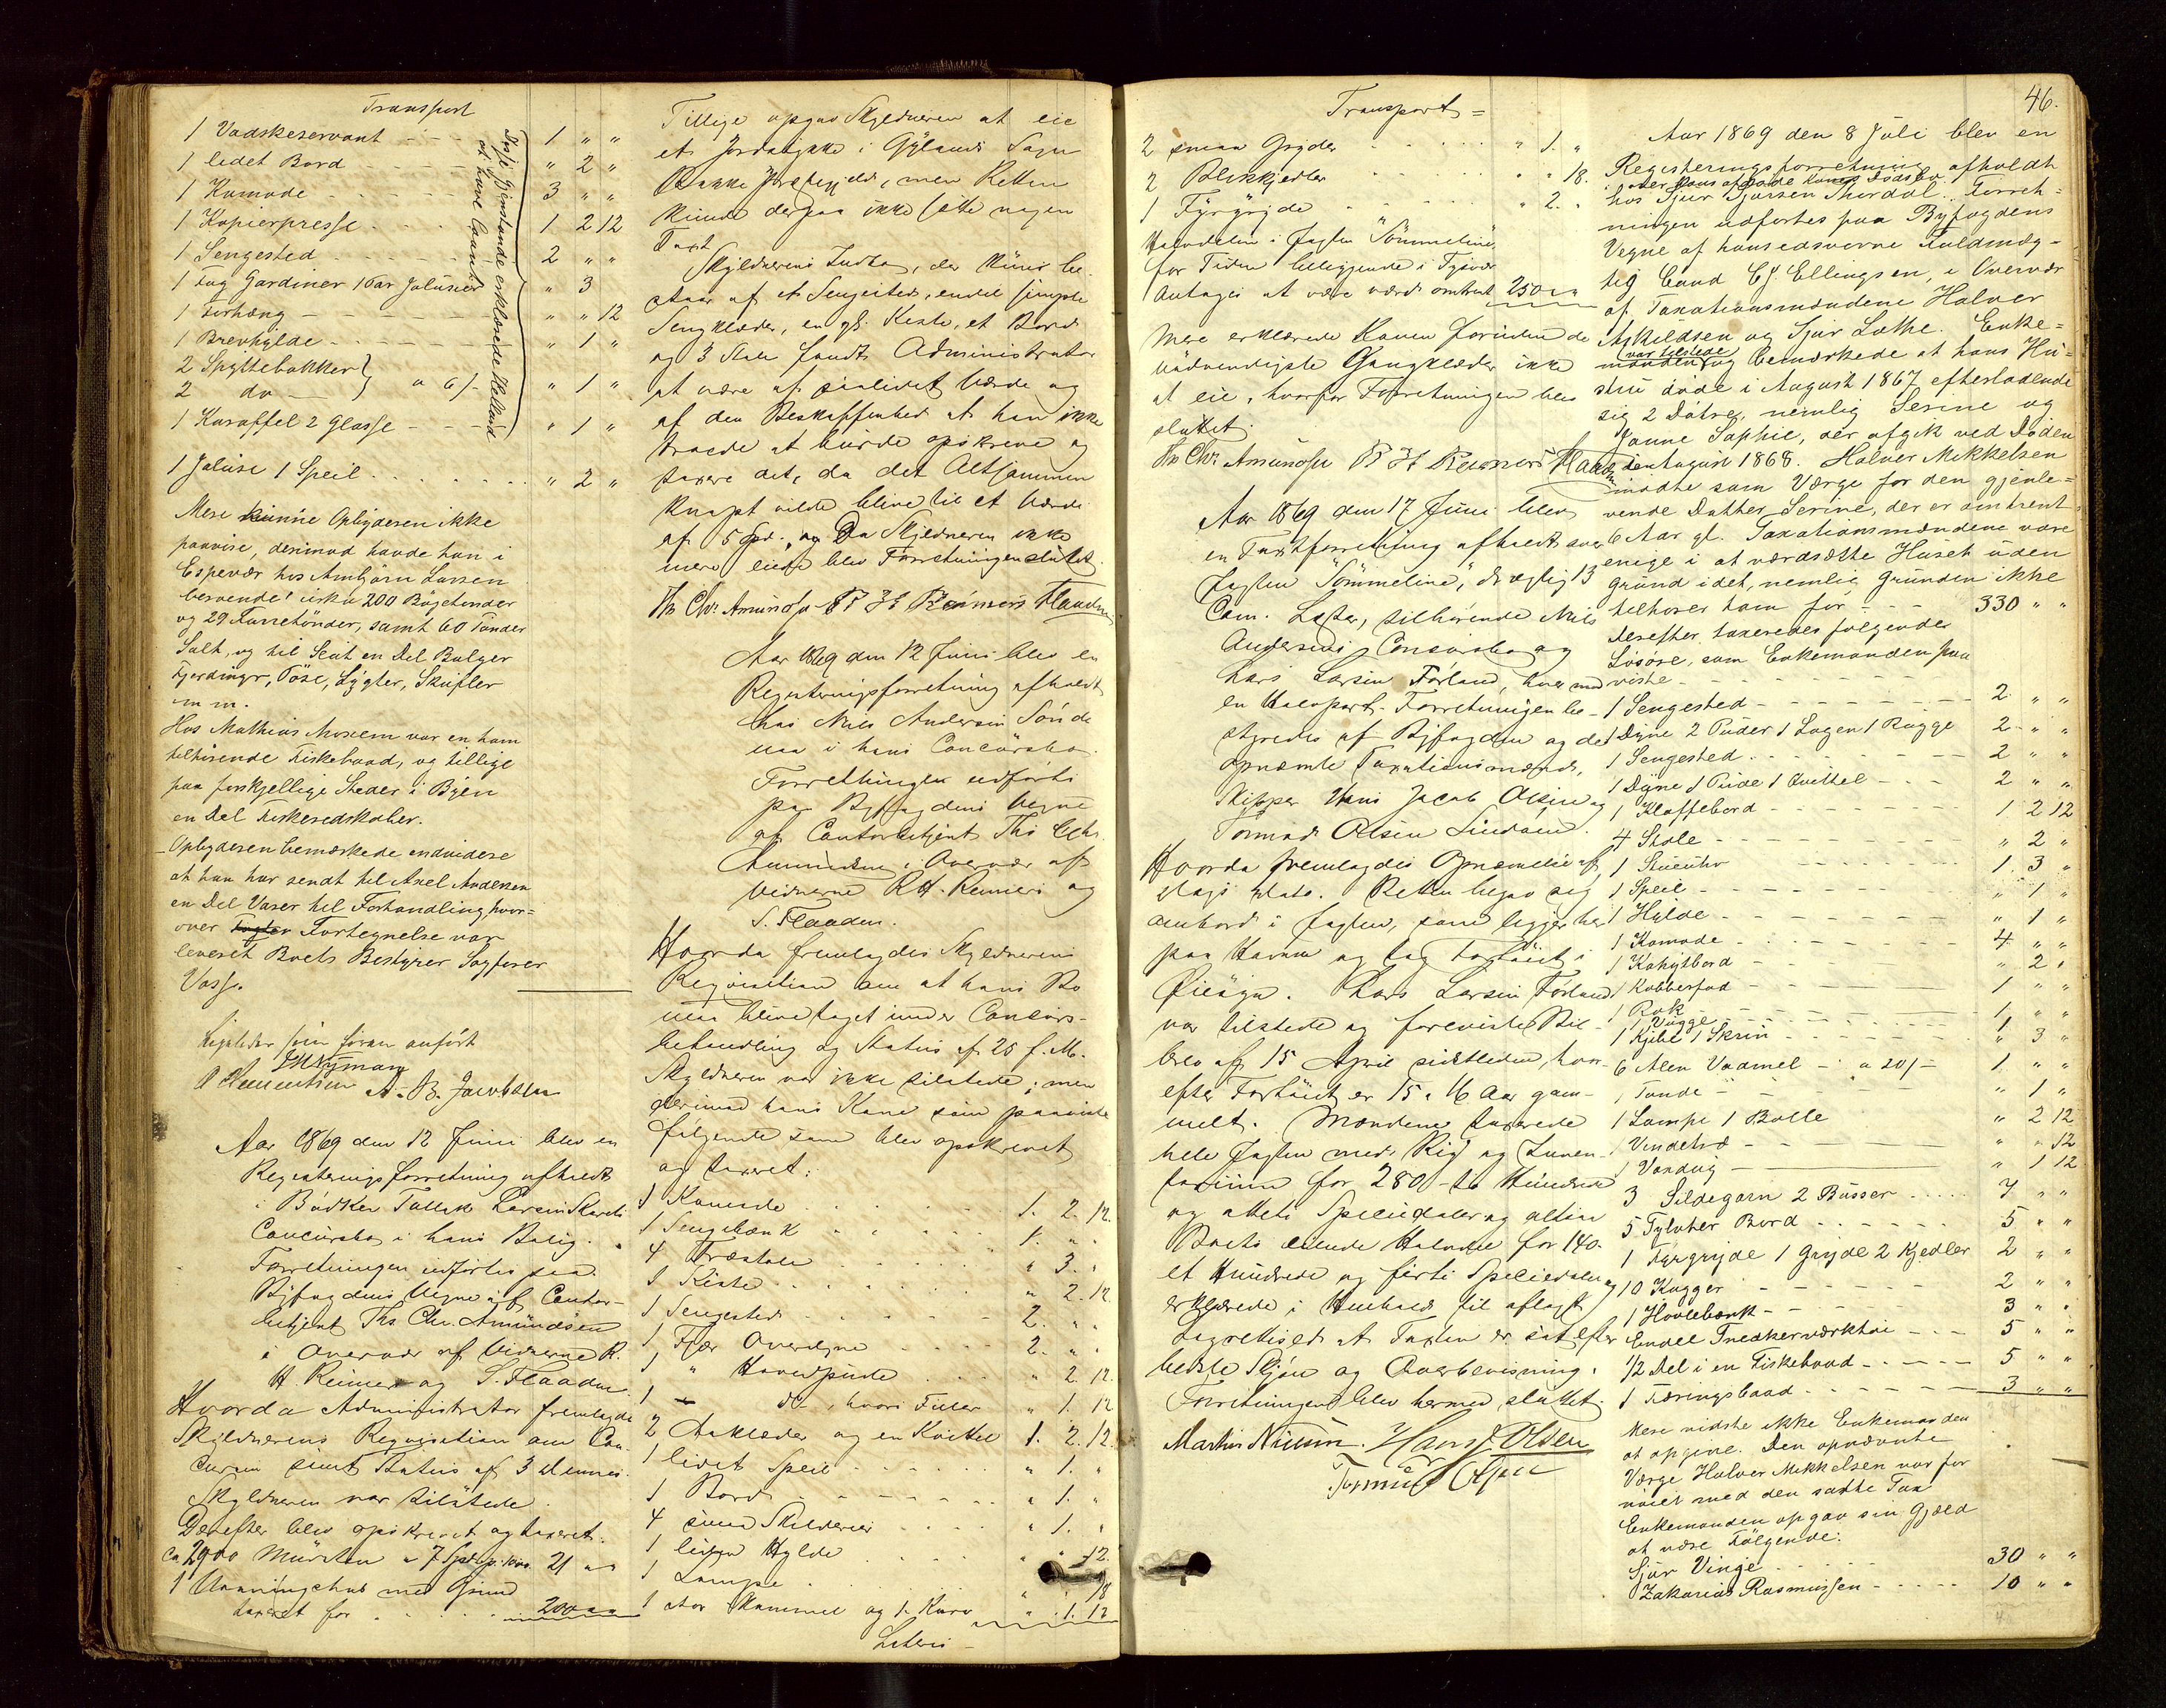 Transport
1 Vadskeservant - - - 1 " "
1 lidet Bord - - - " 2 "
1 Komode - - - 3 " "
1 Kopierpresse - - - 1 2 12
1 Sengested - - - 2 " "
1 Fag Gardiner 1 Par Jalusier " 3
1 Forhæng - - - " " 12
1 Brevhylde - - - " 1 "
2 Spyttebakker }
2 do - } a 6/- " 1 "
1 Karaffel 2 Glasse - - - " 1 "
Disse Gjenstande erklærede Helland
at have laant
1 Jalusi 1 Speil - - - " 2 "
Mere kunne Opbyderen ikke
paavise, derimod havde han i
Espevær hos Ambjørn Larsen
beroende cirka 200 Bøgetønder
og 29 Furretønder, samt 60 Tønder
Salt, og til Leit en Del Balger
Fjerdinger, Pøse, Lygter, Skufler
m m.
Hos Mathias Mosiem var en ham
tilhørende Fiskebaad, og tillige
paa forskjellige Steder i Byen
en Del Fiskeredskaber.
Opbyderen bemærkede endvidere
at han har sendt til Axel Andersen
en Del Varer til Forhandling hvor=
over Fortegnelse var
leveret Boets Bestyrer Sagfører
Vasse.
som foran anført
A. B. Jacobsen
Aar 1869 den 12 Juni blev en
Registeringsforretning afholdt
i Bødker Tallak Larsen
Concursbo i hans Bolig.
Forretningen udførtes paa
Byfogdens Vegne af Contor-
betjent Ths Chr. Amundsen
i Overvær af Vidnerne R.
H. Reimers og S. Flaaden.
Hvorda Administrator fremlagde
Skyldnerens Reqvisition om Con-
cursen samt Status af 3 dennes.
Skyldneren var tilstede.
Derefter blev opskrevet og taxeret:
ca 2900 Mursten a 7 Spd. p. 21 " "
1 Vaaningshus med Grund
taxeret for - - - 200 " "
Tillige opgav Skyldneren at eie
et Jordstykke i Gylands Sogn
Bakke Præstegjeld, men Retten
kunde derpaa ikke sætte nogen
Taxt
Skyldnerens Indbo, der kuns be-
staar af et Sengested, endel simple
Sengklæder, en gl. Kiste, et Bord
og 3 Stole fandt Administrator
at være af saa lidet Værde og
af den Beskaffenhed at han ikke
troede at burde opskrive og
taxere det, da det Altsammen
knapt vilde blive til et Værdi
af 5 Spd. Da Skyldneren ikke
mere eiede blev Forretningen sluttet.
Ths Chr. Amundsen R H Reimers Flaaden
Aar 1869 den 12 Juni blev en
Registeringsforretning afholdt
hos Nils Andersen Sønde
naa i hans Concursbo.
Forretningen udførtes
paa Byfogdens Vegne
af Contorbetjent Ths Chr.
Amundsen i Overvær af
Vidnerne R. H. Reimers og
S. Flaaden.
Hvorda fremlagdes Skyldnerens
Reqvisition om at hans Bo
maa blive taget under Concurs-
behandling og Status af 25 f. M.
Skyldneren var ikke tilstede; men
derimod hans Kone som paaviste
følgende som blev opskrevet
og taxeret:
1 Komode - - - 1. 2. 12.
1 Sengebænk - - - 1. " "
4 Træstole - - - " 3. "
1 Kiste - - - " 2. 12
1 Sengested - - - 2. " "
1 Fjær Overdyne - - - 2. " "
1 " Hovedpude - - - " 2. 12.
1 do, hvori Fiær " 1. 12
2 Aaklæder og en Kvittel 1. 2. 12.
1 lidet Speil - - - " 1. "
1 Bord - - - " 1. "
4 smaa Skilderier - - - " 1. "
1 liden Hylde - - - " " 12.
1 Lampe - - - " " 18
1 stor Skammel og 1 Kurv - " 1. 12
Lateris -
46.
Transport =
2 smaa Gryder - - - " 1. "
2 Blikkjedler - - - " " 18.
1 Fyrgryde - - - " 2. "
Halvdelen i Jagten "Sømmeline"
for Tiden beliggende i Tysvær
Antages at være værd omtrent 250 " "
Mere erklærede Konen foruden de
nødvendigste Gangklæder ikke
at eie, hvorfor Forretningen blev
sluttet.
Ths Chr. Amundsen R H Reimers Flaaden
Aar 1869 den 17 Juni blev
en Taxtforretning afholdt over
Jagten "Sømmeline", drægtig 13
Com. Læster, tilhørende Nils
Andersens Concursbo og
Lars Larsen Førland, hver med
en Halvpart. Forretningen be-
styredes af Byfogden og de
opnævnte Taxationsmænd,
Skipper Hans Jacob Olsen og
Tormod Olsen Lindøen.
Hvorda fremlagdes Opnævnelse af
dags Dato. Retten begav sig
ombord i Jagten, som ligger her
paa Havnen og tog Fartøiet i
Øiesyn. Lars Larsen Førland
var tilstede og foreviste Bil-
brev af 15 April sidstleden, hvor-
efter Fartøiet er 15 a 16 Aar gam-
melt. Mændene taxerede
hele Jagten med Rig og Inven-
tarium for 280 - to Hundrede
og otteti Speciedaler og altsaa
Boets eiende Halvdel for 140.
et Hundrede og førti Speciedaler og
erklærede i Henhold til aflagt
Lagrettesed at Taxten er sat efter
bedste Skjøn og Overbevisning.
Forretningen blev hermed sluttet.
Martin Nilsen. Hans J Olsen
Tormod Olsen
Aar 1869 den 8 Juli blev en
Registeringsforretning afholdt
i over hans afdøde Kones Dødsbo
hos Sjur Sjursen Skordal. Forret=
ningen udførtes paa Byfogdens
Vegne af hans edsvorne Fuldmæg-
tig Cand CJ Ellingsen, i Overvær
af Taxationsmændene Halvor
Askildsen og Sjur Lothe. Enke=
manden var tilstede og bemærkede at hans Hu=
stru døde i August 1867 efterladende
sig 2 Døtre, nemlig Serine og
Janne Sophie, der afgik ved Døden
i August 1868. Halvor Mikkelsen
mødte som Værge for den gjenle=
vende Datter Serine, der er omtrent
6 Aar gl. Taxationsmændene vare
enige i at værdsætte Huset uden
Grund idet, nemlig Grunden ikke
tilhører ham for - - - 330 " "
Derefter taxeredes følgende
Løsøre, som Enkemanden paa
viste - - -
1 Sengested - - - 2 " "
1 Dyne 2 Puder 1 Lagen 1 Rugge 2 " "
1 Sengested - - - 2 " "
1 Dyne 1 Pude 1 Kvittel - - - 2 " "
1 Klaffebord - - - 1 2 12
4 Stole - - - " 2 "
1 Stueuhr - - - 1. 3 "
1 Speil - - - " 1 "
1 Hylde - - - " 1 "
1 Komode - - - 4 " "
1 Kahytbord - - - " 2 "
1 Kobberfad - - - 1 " "
1 Rok - - - 1 " "
1 Vugge - - -
1 Kjibe 1 Skrin - - - " 3 "
6 Alen Vadmel - a 20/- 1 " "
1 Tønde - - - " 1 "
1 Lampe 1 Bolle " 2 12
1 Vindetræ - - - " " 12
1 Voxdug - - - " 1 12
3 Sildegarn 2 Busser - - - 7 " "
5 Tylvter Bord - - - 5 " "
1 Fyrgryde 1 Gryde 2 Kjedler 2 " "
10 Kagger - - - 2 " "
1 Høvlebænk - - - 3 " "
Endel Snedkerværktøi - - - 5 " "
1/2 Del i en Fiskebaad - - - 5 " "
1 Færingsbaad - - - 3 " "
Mere vidste ikke Enkemanden
at opgive. Den opnævnte
Værge Halvor Mikkelsen var for
nøiet med den satte Tax
Enkemanden opgav sin Gjæld
at være Følgende:
Sjur Vinge - - - 30 " "
Zakarias Rasmussen - - - 10 " "